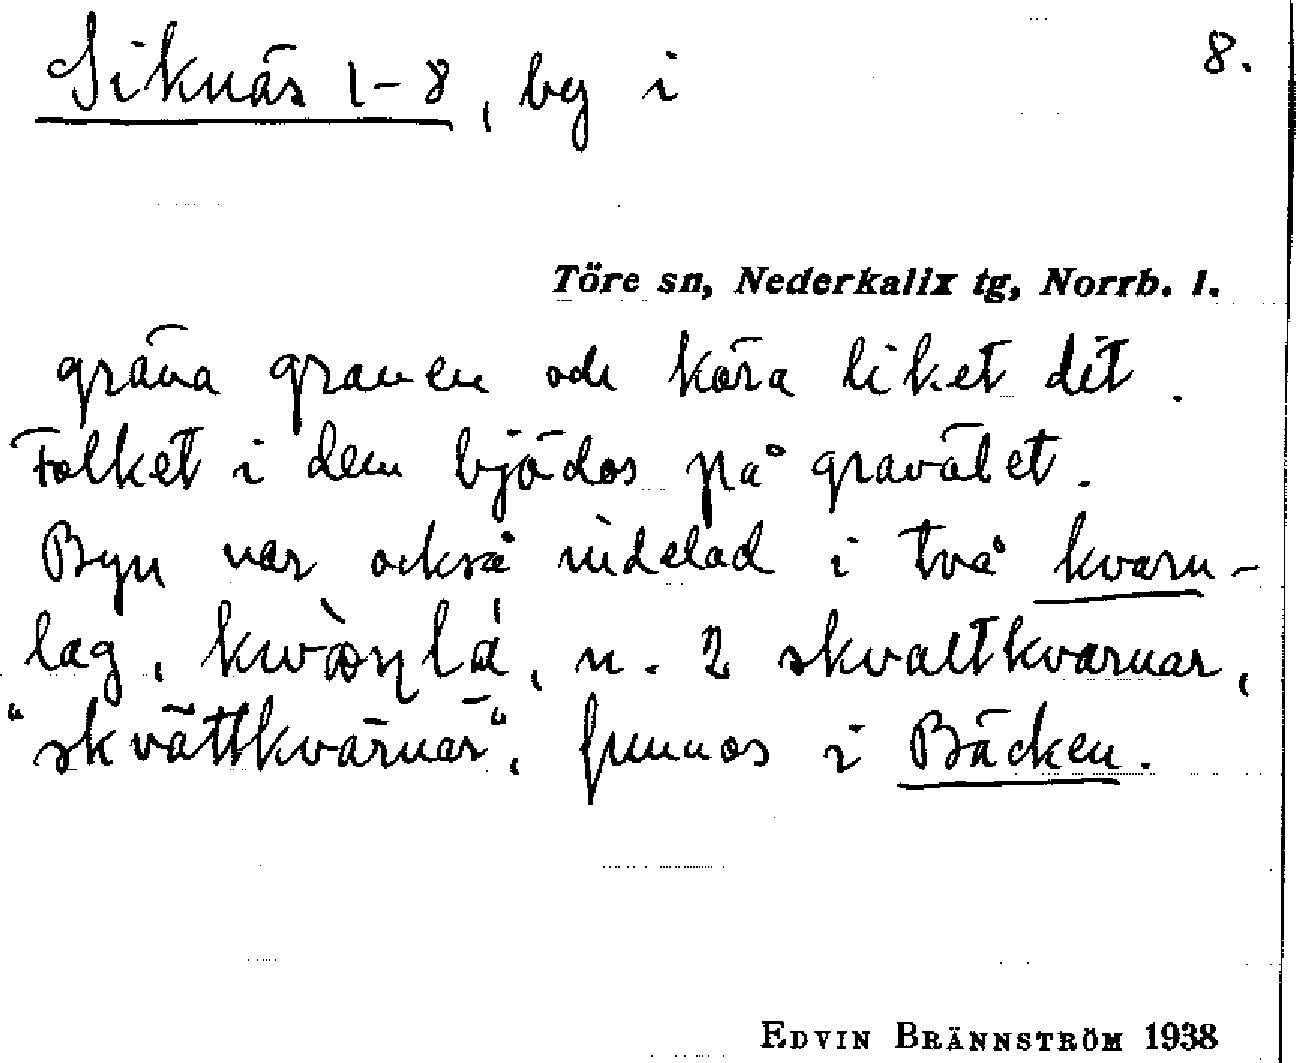 Siknäs 1-8, by i
8.
Töre sn, Nederkalix tg, Norrb. l.
gräva graven och köra liket dit.
Folket i dem bjödos på gravölet.
Byn var också indelad i två kvarn-
lag, , n. 2 skvaltkvarnar,
"skvättkvärnar", funnos i Bäcken.
EDVIN BRÄNNSTRÖM 1938